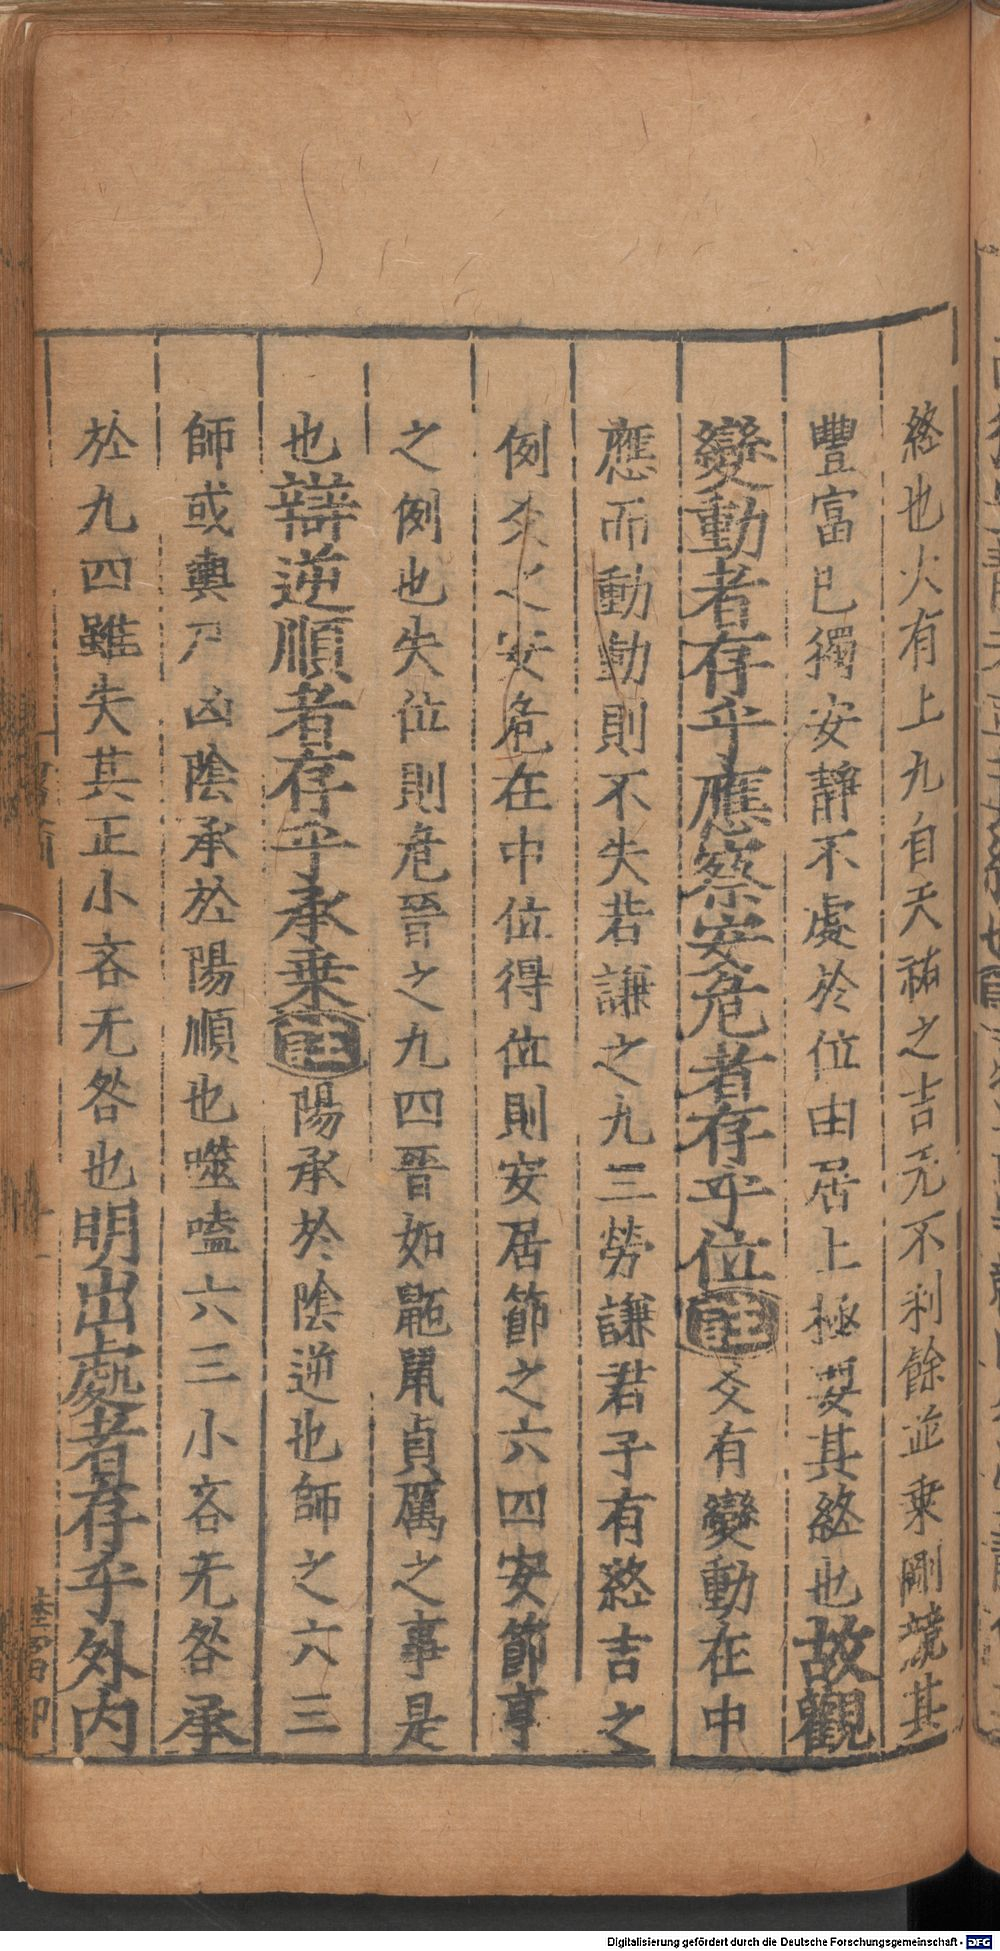 終也火有上九自天祐之吉无不利餘並乗剛競其
豐富巳獨安靜不處於位由居上極要其終也故觀
變動者存乎應察安危者存乎位註爻有變動在中
應而動動則不失若謙之九三勞謙君子有終吉之
例爻之安危在中位得位則安居節之六四安節亨
之例也失位則危晉之九四晉如鼫鼠貞厲之事是
也辯逆順者存乎承乗註陽承於陰逆也師之六三
師或輿尸凶陰承於陽順也噬嗑六三小吝无咎承
於九四雖失其正小吝无咎也明出處者存乎外内
Digitalisierung gefördert durch die Deutsche Forschungsgemeinschaft - DFG